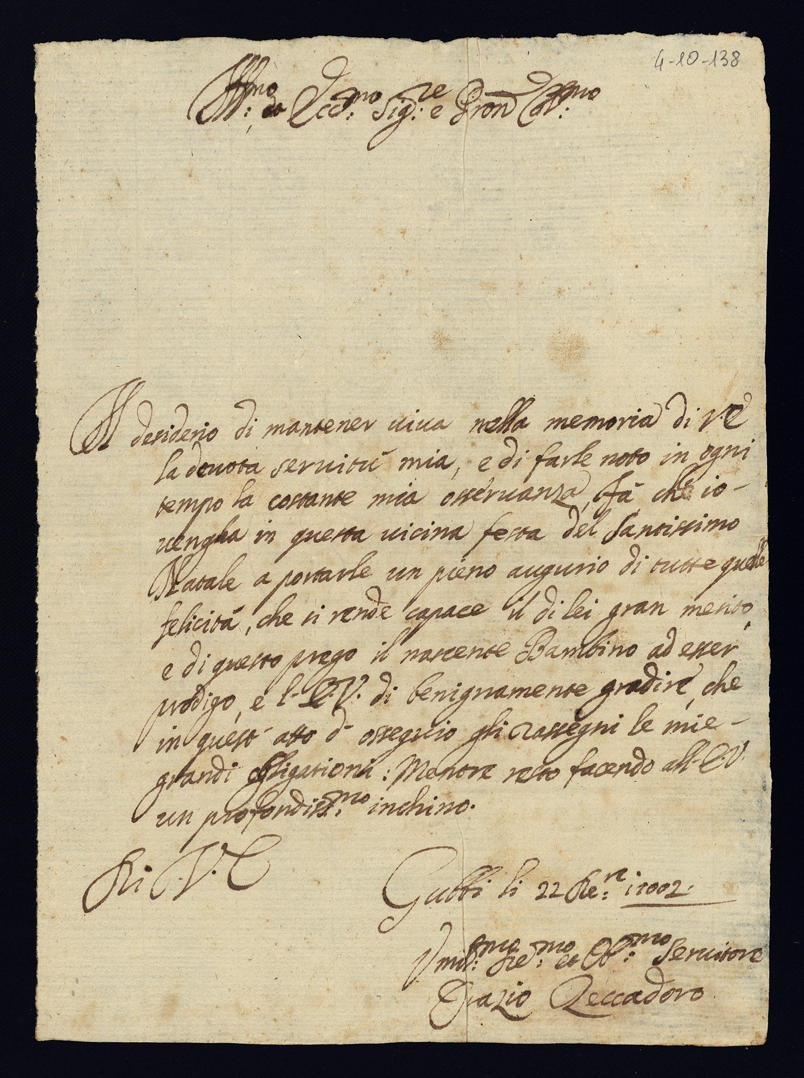 4-10-138
Ill:mo et Ecc:mo Sig:re e Pron Col:mo
Il desiderio di mantener viva nella memoria di V.E.
la devota servitù mia, e di farle noto in ogni
tempo la costante mia osservanza, fà che io-
vengha in questa vicina festa del Santissimo
Natale a portarle un pieno augurio di tutte quelle
felicità, che si rende capace il di lei gran merito,
e di questo prego il nascente Bambino ad esser
prodigo, e l'E.V. di benignamente gradire, che
in quest'atto d'ossequio gli rassegni le mie-
grandi obligationi: Mentre resto facendo all'E.V.
un profondiss:mo inchino.
Di V.E.
Gubbi li 22 Xe:re 1702.
Umil:mo De:mo et Ob:mo Servitore
Orazio Beccadoro